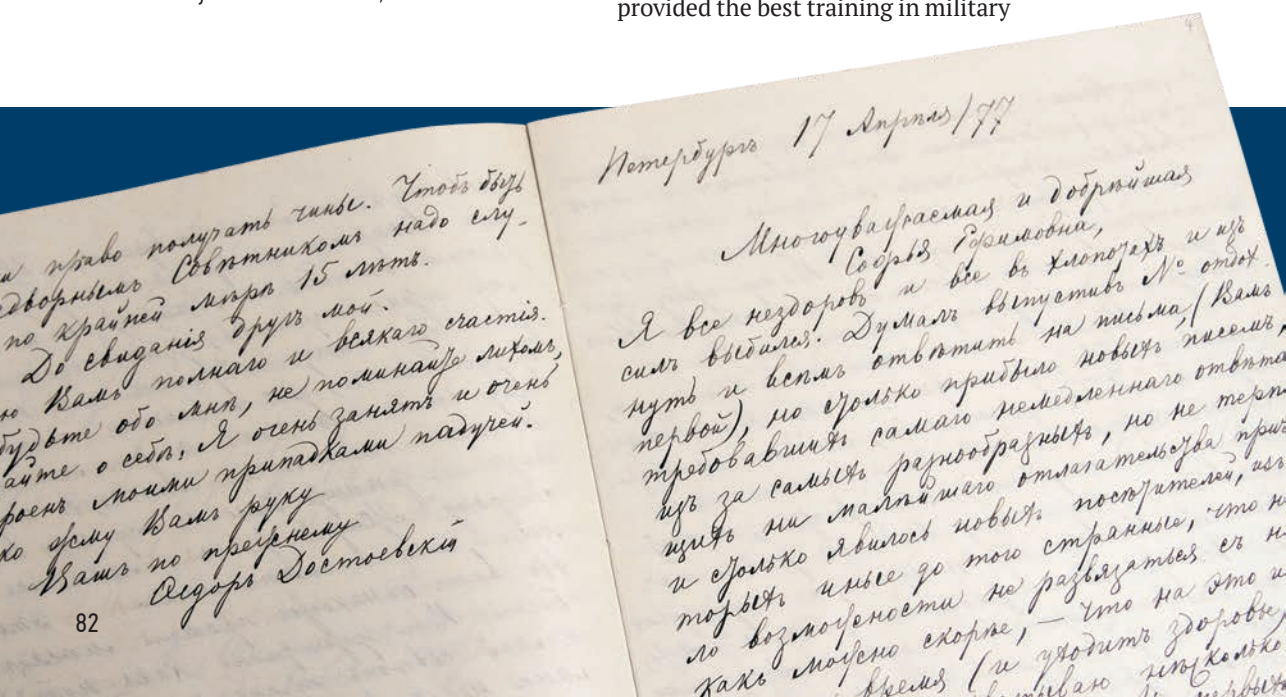 provided the best training in military
право получать чины. Чтобъ быть
дворнымъ Совѣтникомъ надо слу-
по крайней мѣрѣ 15 лѣтъ.
До свиданія другъ мой.
Вамъ полнаго и всякаго счастія.
будьте обо мнѣ, не поминайте лихомъ,
айте о себѣ, Я очень занятъ и очень
роенъ моими припадками падучей.
ко жму Вамъ руку
Вашъ по прежнему
Ѳедоръ Достоевскій
82
4
Петербургъ 17 Апрѣля/77
Многоуважаемая и добрѣйшая
Софья Ефимовна,
Я все нездоровъ и все въ хлопотахъ и изъ
силъ выбился. Думалъ выпустивъ № отдох-
нуть и всѣмъ отвѣтить на письма, (Вамъ
первой), но столько прибыло новыхъ писемъ,
требовавшихъ самаго немедленнаго отвѣта
изъ за самыхъ разнообразныхъ, но не терпя
щихъ ни малѣйшаго отлагательства прич
и столько явилось новыхъ посѣтителей, изъ
торыхъ иные до того странные, что н
ло возможности не развязаться съ н
какъ можно скорѣе, — что на это и
время (и уходитъ здоровье,
нѣсколько